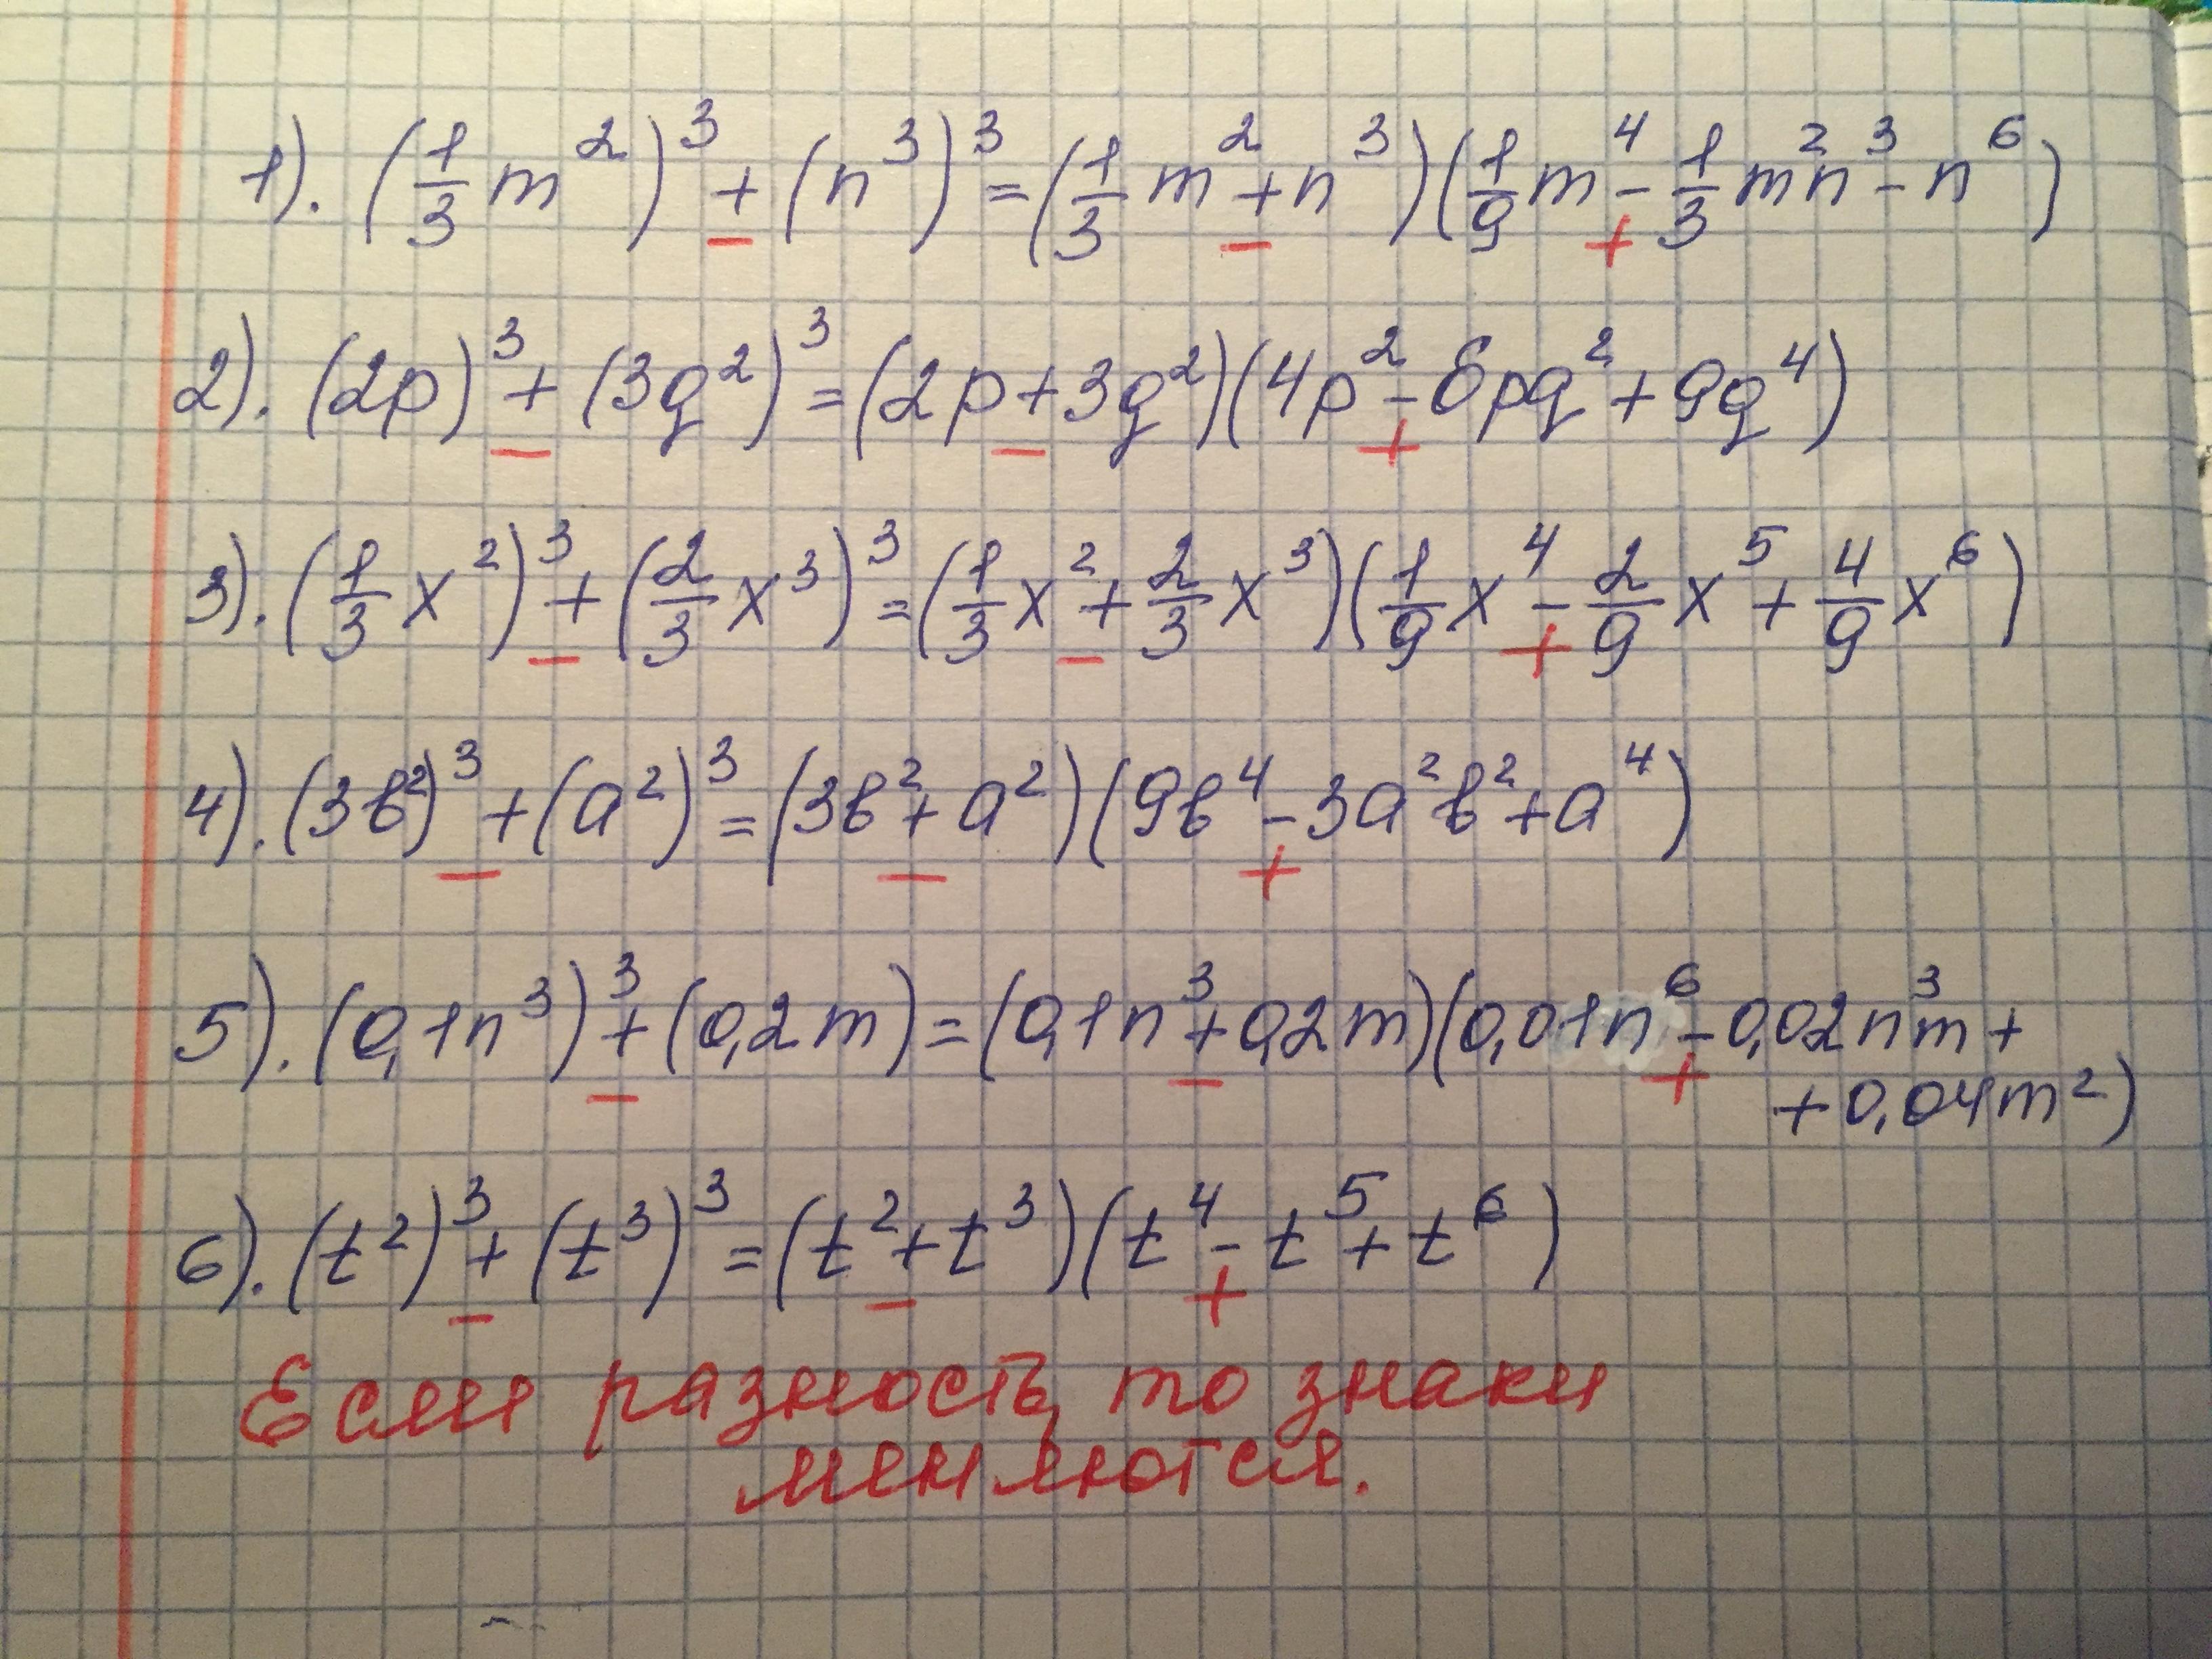 1). (1/3 m²)³ + (n³)³ = (1/3 m² + n³)(1/9 m⁴ - 1/3 m²n³ - n⁶)
− − +
2). (2p)³ + (3q²)³ = (2p + 3q²)(4p² - 6pq² + 9q⁴)
− − +
3). (1/3 x²)³ + (2/3 x³)³ = (1/3 x² + 2/3 x³)(1/9 x⁴ - 2/9 x⁵ + 4/9 x⁶)
− − +
4). (3в²)³ + (a²)³ = (3в² + a²)(9в⁴ - 3a²в² + a⁴)
− − +
5). (0,1n³)³ + (0,2m) = (0,1n³ + 0,2m)(0,01n⁶ - 0,02n³m +
− − +
+ 0,04m²)
6). (t²)³ + (t³)³ = (t² + t³)(t⁴ - t⁵ + t⁶)
− − +
Если разность, то знаки
меняются.